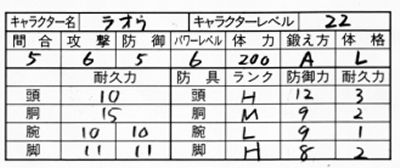 キャラクター名 ラオウ キャラクターレベル 22
間合 攻撃 防御 パワーレベル 体力 鍛え方 体格
5 6 5 6 200 A L
耐久力 防具 ランク 防御力 耐久力
頭 10 頭 H 12 3
胴 15 胴 M 9 2
腕 10 10 腕 L 9 1
脚 11 11 脚 H 8 2